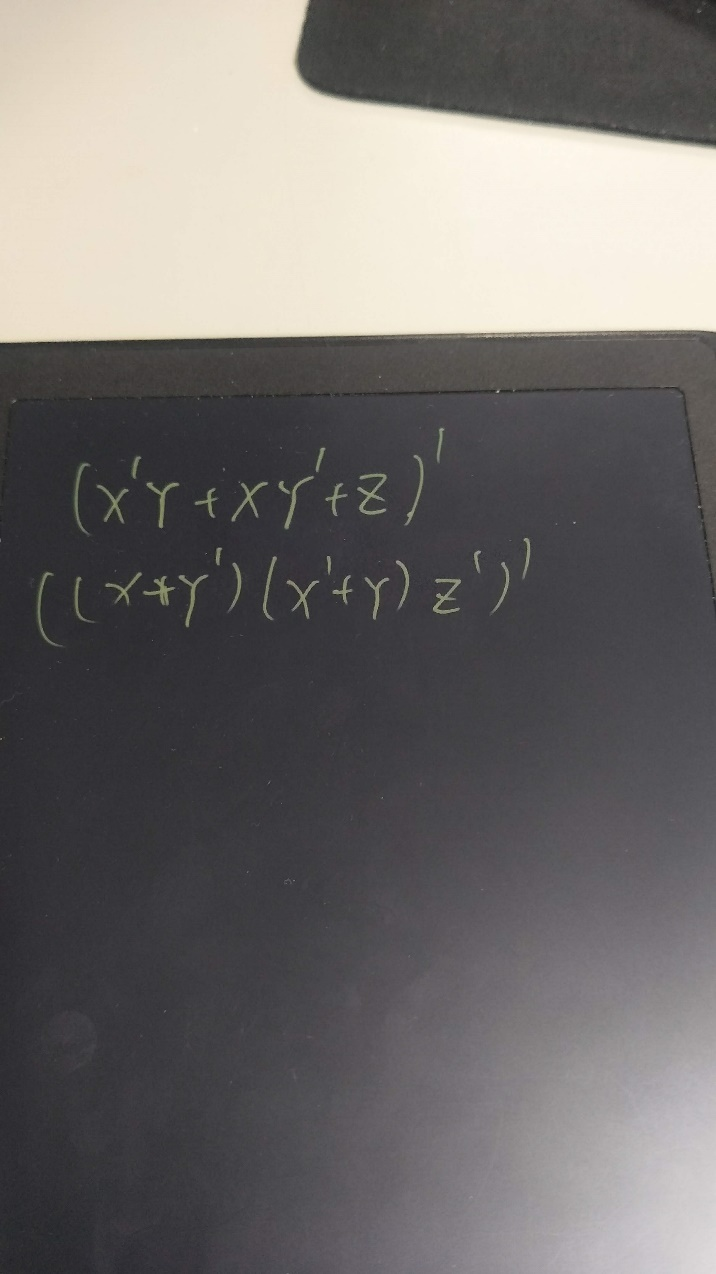 (x'y+xy'+z)'
((x+y')(x'+y)z')'